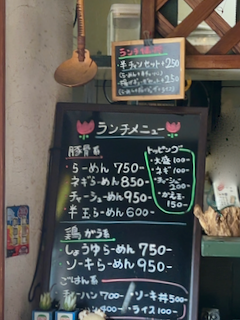 半チャンセット+250
ランチメニュー
豚骨系
らーめん 750-
ネギらーめん 850-
チャーシューめん 950-
半玉らーめん 600-
トッピング
・大盛 100-
・ネギ 100-
・チャーシュー
200-
・かえ玉
150-
鶏がら系
しょうゆらーめん 750-
ソーキらーめん 950-
ごはん系
ーハン 700-
・ソーキ丼 500-
400-
・ライス 100-